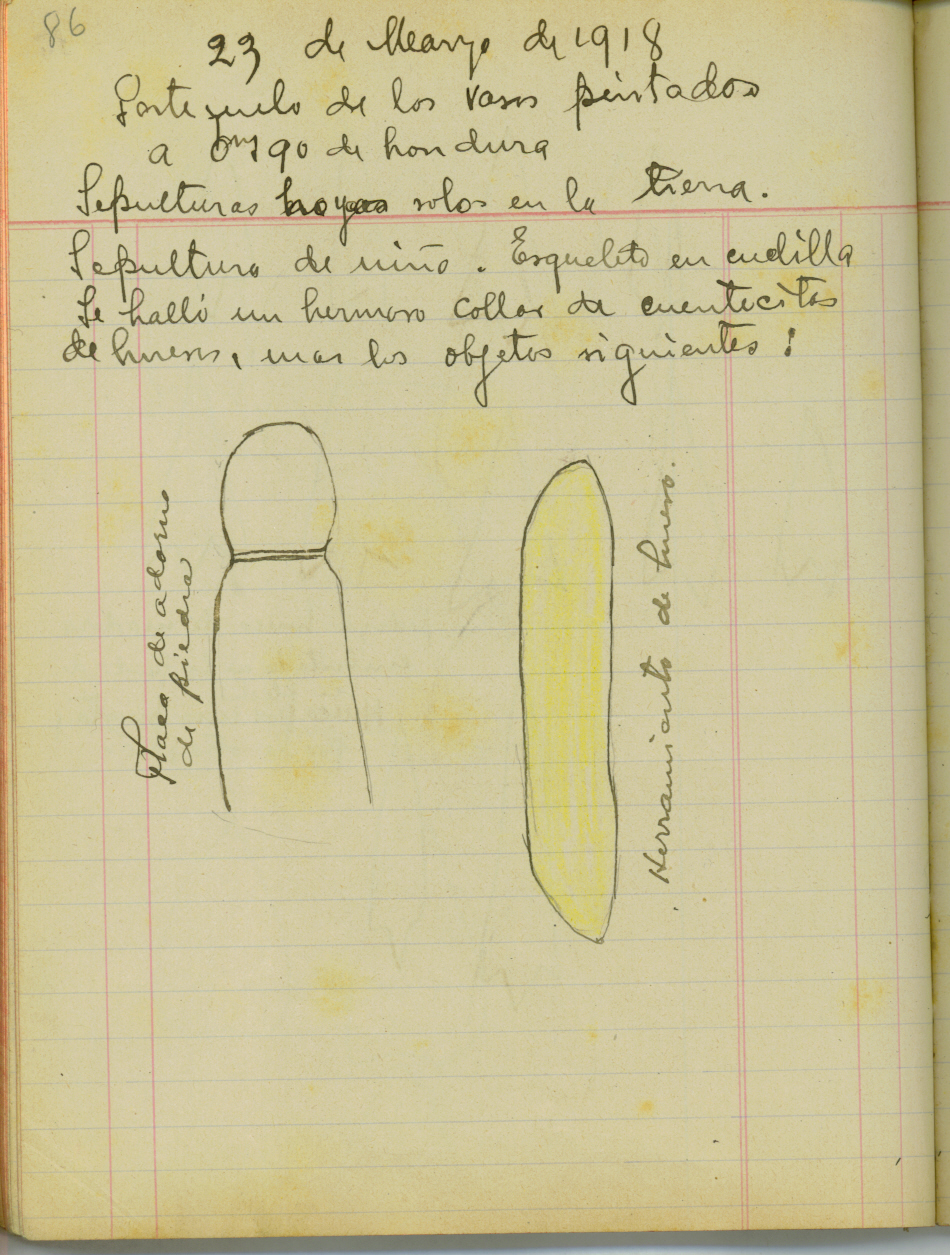 86
23 de Marzo de 1918
Portezuelo de los vasos pintados
a 0m90 de hondura
Sepulturas hoyos solos en la tierra.
Sepultura de niño. Esqueleto en cuclilla
Se halló un hermoso collar de cuentecitas
de hueso, mas los objetos siguientes:
Placa de adorno
de piedra
Herramienta de hueso.